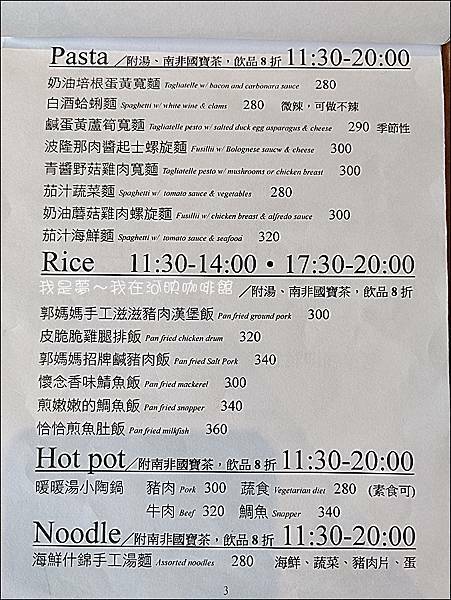 Pasta／附湯、南非國寶茶，飲品8折 11:30-20:00
奶油培根蛋黃寬麵 Tagliatelle w/ bacon and carbonara sauce 280
白酒蛤蜊麵 Spaghetti w/ white wine & clams 280 微辣，可做不辣
鹹蛋黃蘆筍寬麵 Tagliatelle pesto w/ salted duck egg asparagus & cheese 290 季節性
波隆那肉醬起士螺旋麵 Fusilli w/ Bolognese saucw & cheese 300
青醬野菇雞肉寬麵 Tagliatelle pesto w/ mushrooms or chicken breast 300
茄汁蔬菜麵 Spaghetti w/ tomato sauce & vegetables 280
奶油蘑菇雞肉螺旋麵 Fusillii w/ chicken breast & alfredo sauce 300
茄汁海鮮麵 Spaghetti w/ tomato sauce & seafood 320
Rice 11:30-14:00・17:30-20:00
我是夢～我在河映咖啡館
／附湯、南非國寶茶，飲品8折
郭媽媽手工滋滋豬肉漢堡飯 Pan fried ground pork 300
皮脆脆雞腿排飯 Pan fried chicken drum 320
郭媽媽招牌鹹豬肉飯 Pan fried Salt Pork 340
懷念香味鯖魚飯 Pan fried mackerel 300
煎嫩嫩的鯛魚飯 Pan fried snapper 340
恰恰煎魚肚飯 Pan fried milkfish 360
Hot pot／附南非國寶茶，飲品8折 11:30-20:00
暖暖湯小陶鍋 豬肉 Pork 300 蔬食 Vegetarian diet 280 (素食可)
牛肉 Beef 320 鯛魚 Snapper 340
Noodle／附南非國寶茶，飲品8折 11:30-20:00
海鮮什錦手工湯麵 Assorted noodles 280 海鮮、蔬菜、豬肉片、蛋
3